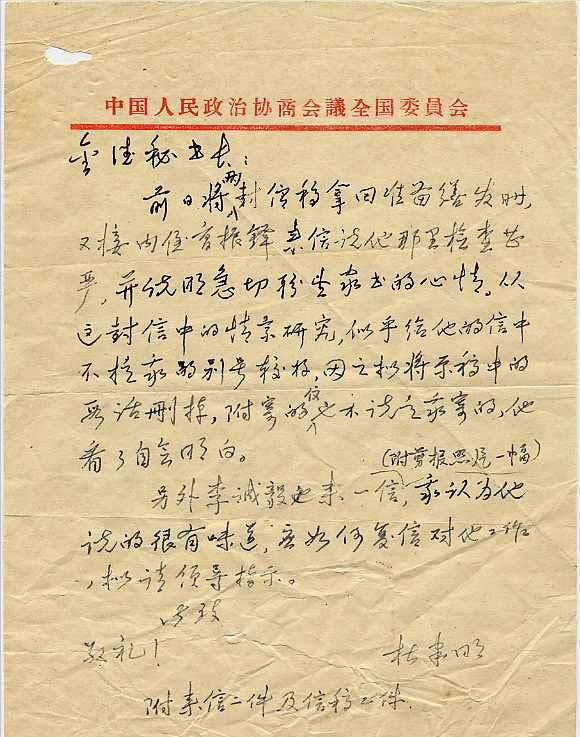 中国人民政治协商会議全国委員会
秘书长：
前日将两封信稿拿回准备缮发时，
又接内侄曹振铎来信说他那里检查甚
严，并说明急切盼望家书的心情。从
这封信中的情景研究，似乎给他的信中
不提我的别号较好，因之拟将原稿中的
段话删掉，附寄的信也不说是我寄的，他
看了自会明白。
（附剪报照片一幅）
另外李诚毅也来一信，我认为他
说的很有味道，应如何复信对他工作
，拟请领导指示。
此致
敬礼！ 杜聿明
附来信二件及信稿二件.